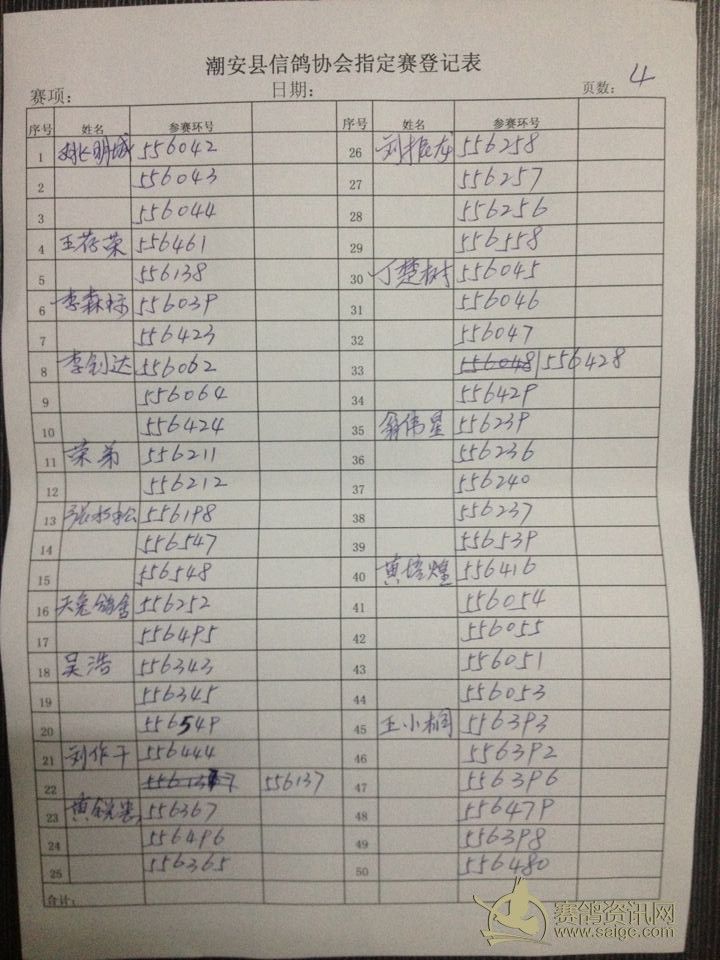 潮安县信鸽协会指定赛登记表
赛项: 日期: 页数: 4
序号 姓名 参赛环号 序号 姓名 参赛环号
1 姚明城 556042 26 刘振龙 556258
2 556043 27 556257
3 556044 28 556256
4 王荐荣 556461 29 556558
5 556138 30 丁楚树 556045
6 李森标 556039 31 556046
7 556423 32 556047
8 李钊达 556062 33 556048 556428
9 556064 34 556429
10 556424 35 翁伟星 556239
11 荣弟 556211 36 556236
12 556212 37 556240
13 556198 38 556237
14 556547 39 556539
15 556548 40 黄培煌 556416
16 天兔鸽舍 556252 41 556054
17 556495 42 556055
18 吴浩 556343 43 556051
19 556345 44 556053
20 556549 45 王小桐 556393
21 刘作干 556444 46 556392
22 556137 47 556396
23 556367 48 556479
24 556496 49 556398
25 556365 50 556480
合计:
赛鸽资讯网
www.saigc.com